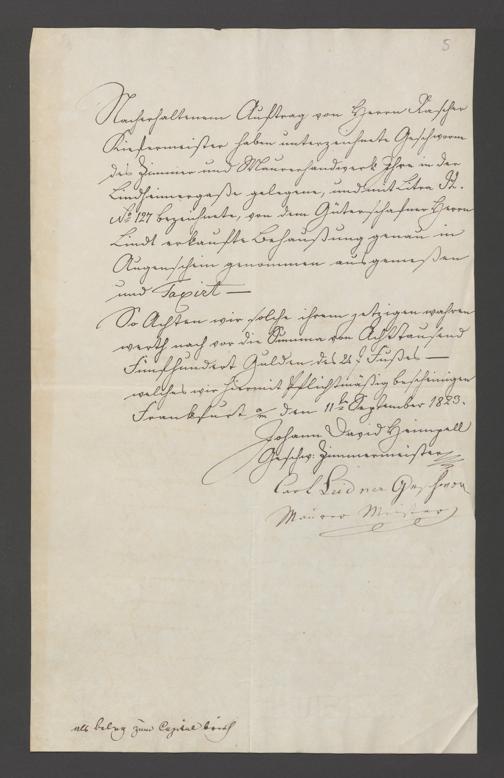 5
Nacherhaltenem Auftrag von Herrn Kascher
Kiefermeister haben unterzeichnete Geschworne
des Zimmer und Maurerhandwerk Ihre in der
Lindheimergaße gelegene, und mit Litra H.
No 127 bezeichnete, von dem Güterschafner Herrn
Lindt erkaufte Behaußung genau in
Augenschein genommen ausgemeßen
und Taxirt —
So Achten wir solche ihrem jetzigen wahren
werth nach vor die Summa von Achttausend
Fünfhundert Gulden des 24 f. Fußes —
welches wir hiermit Pflichtmäßig bescheinigen
Frankfurt a/m den 11ten September 1823.
Johann David Heimpell
Geschw: Zimmermeister
Carl Leidner Geschworn
Maurer Meister
als beleg zum Capital